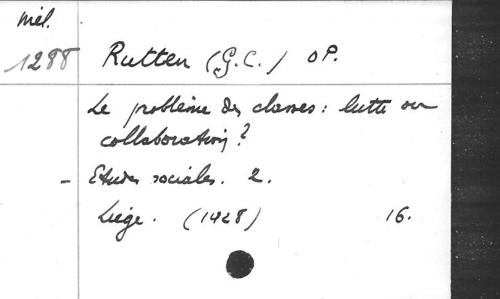 Mél.
1288 Rutten (G.C.) OP.
Le problème des classes : lutte ou
collaboration ?
- Etudes sociales. 2.
Liège. (1928) 16.